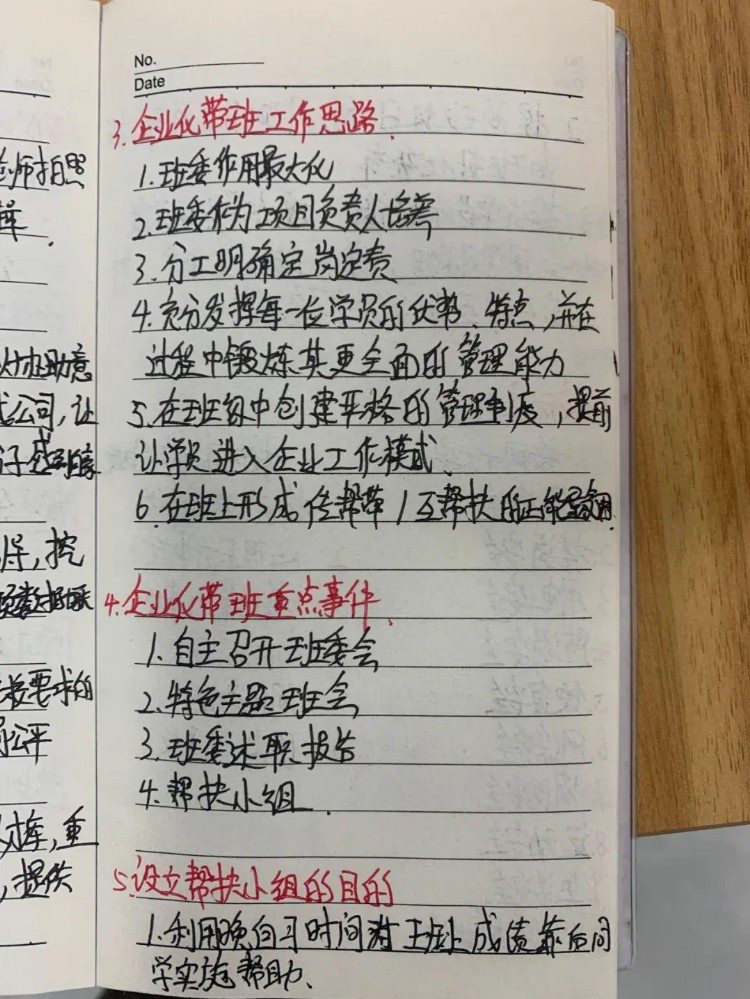 师拍照
助意
公司，让
导，挖
要求的
公平
重
，提供
No.
Date
3.企业化带班工作思路.
1.班委作用最大化
2.班委作为项目负责人培养
3.分工明确定岗定责
4.充分发挥每一位学员的优势、特点，并在
过程中锻炼其更全面的管理能力
5.在班级中创建严格的管理制度，提前
让学员进入企业工作模式、
6.在班上形成传帮带/互帮扶的正能量
4.企业化带班重点事件.
1.自主召开班委会
2.特色主题班会
3.班委述职报告
4.帮扶小组.
5.设立帮扶小组的目的
1.利用晚自习时间对班上成绩靠后同
学实施帮助、